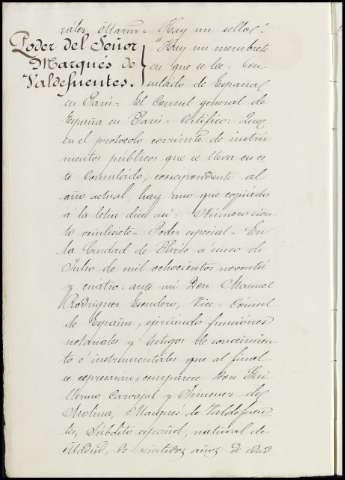 Hay un sello.
Poder del Señor
Marqués de
Valdefuentes.
"Hay un membrete
en que se lee. Con-
sulado de España
en Paris. El Consul general de
España en Paris. Certifico: Que
en el protocolo corriente de instru-
mentos publicos que se lleva en es-
te Consulado, correspondiente al
año actual, hay uno que copiado
a la letra dice asi: Número cien-
to veintisiete. Poder especial. En
la Ciudad de Paris a uno de
Julio de mil ochocientos noventa
y cuatro: ante mi Don Manuel
Rodriguez Escudero, Vice-Consul
de España, ejerciendo funciones
notariales y testigos de conocimien-
to é instrumentales que al final
se expresaran: comparece Don Gui-
llermo Carvajal y Jimenez de
Molina, Marqués de Valdefuen-
tes, Subdito español, natural de
Madrid, de veintidos años de edad